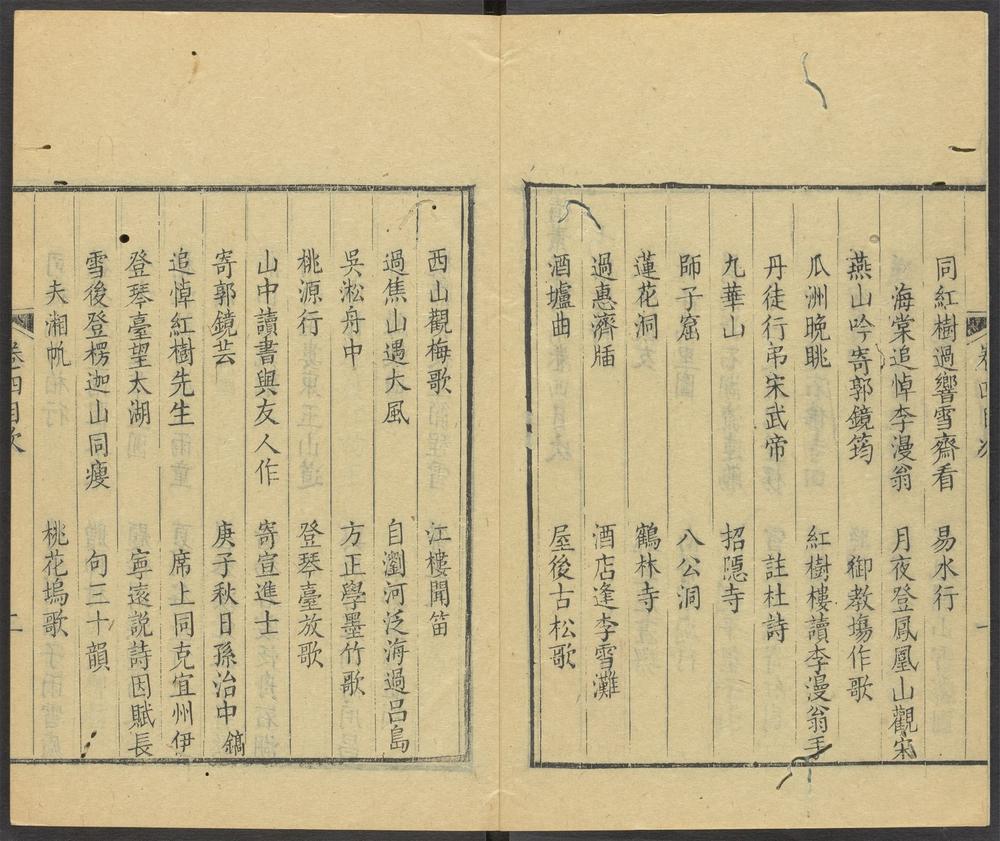 卷四目次
一
同紅樹過響雪齋看 易水行
海棠追悼李漫翁 月夜登鳳凰山觀宋
燕山吟寄郭鏡筠 御教塲作歌
瓜洲晚眺 紅樹樓讀李漫翁手
丹徒行弔宋武帝 註杜詩
九華山 招隱寺
師子窟 八公洞
蓮花洞 鶴林寺
過惠濟牐 酒店逢李雪灘
酒壚曲 屋後古松歌
西山觀梅歌 江樓聞笛
過焦山遇大風 自瀏河泛海過呂島
吳淞舟中 方正學墨竹歌
桃源行 登琴臺放歌
山中讀書與友人作 寄宣進士
寄郭鏡芸 庚子秋日孫治中鎬
追悼紅樹先生 席上同克宜州伊
登琴臺望太湖 寧遠說詩因賦長
雪後登楞迦山同瘦 句三十韻
夫湘帆 桃花塢歌
卷四目次
二